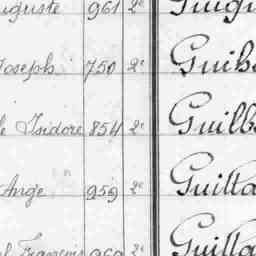 uguste 961 2e Guigu
Joseph 750 2e Guih
Isidore 854 2e Guilb
Ange 959 2e Guilla
François 969 2e Guilla